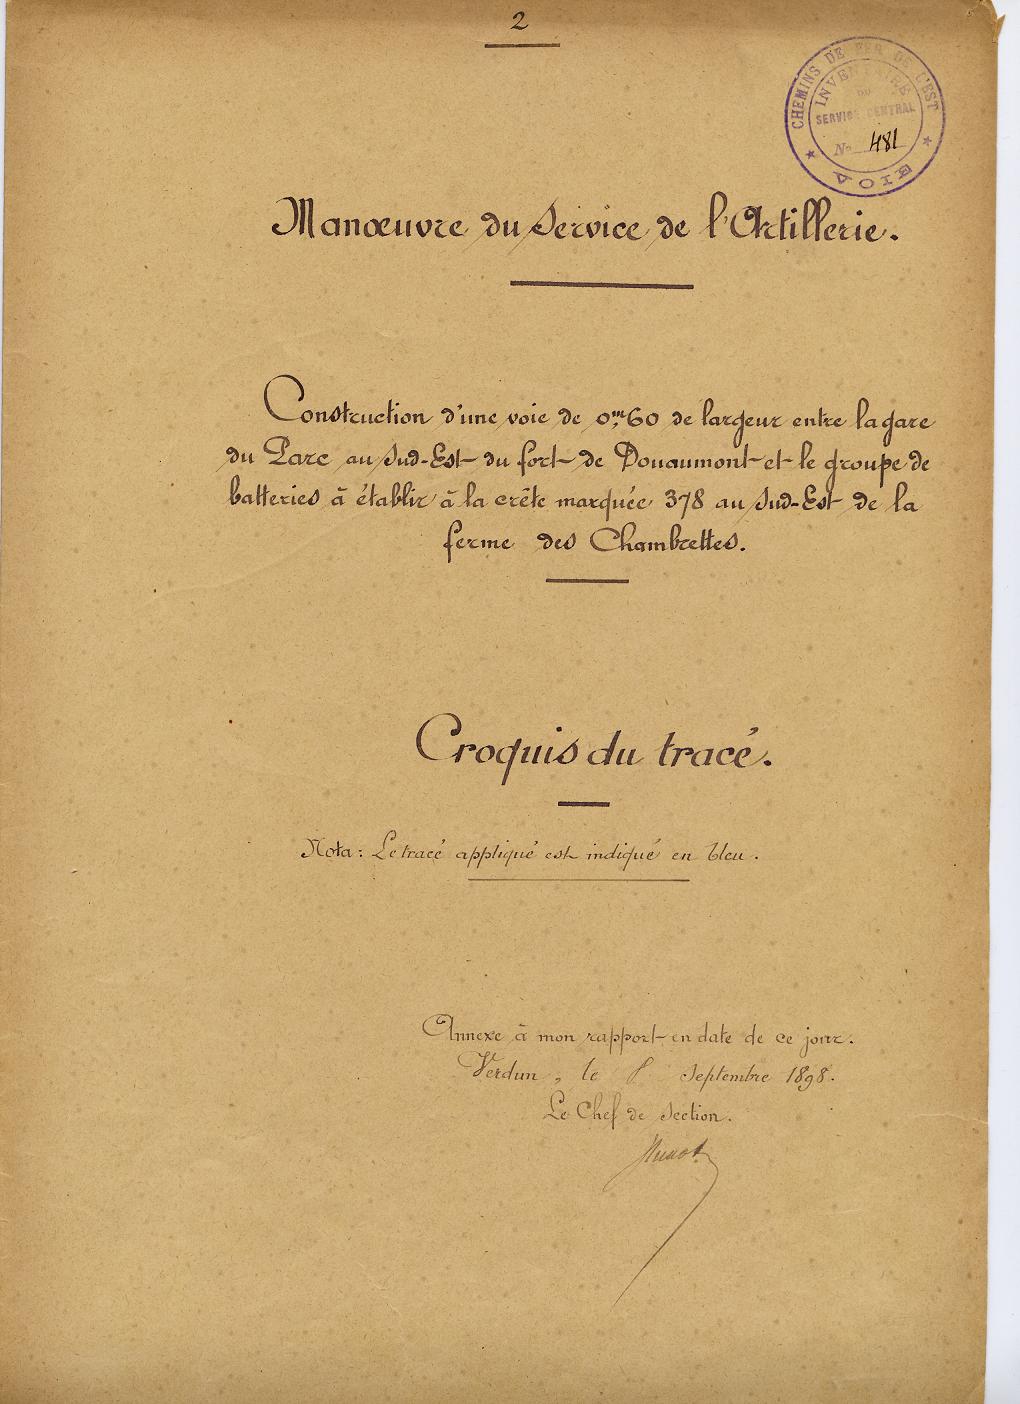 2
CHEMINS DE FER DE L'EST
INVENTAIRE
DU
SERVICE CENTRAL
No 481
VOIE
Manœuvre du Service de l'Artillerie.
Construction d'une voie de 0,m60 de largeur entre la gare
du Parc au Sud-Est du fort de Douaumont et le groupe de
batteries à établir à la crête marquée 378 au Sud-Est de la
ferme des Chambrettes.
Croquis du tracé.
Nota: Le tracé appliqué est indiqué en bleu.
Annexe à mon rapport en date de ce jour.
Verdun, le 8 Septembre 1898.
Le Chef de Section.